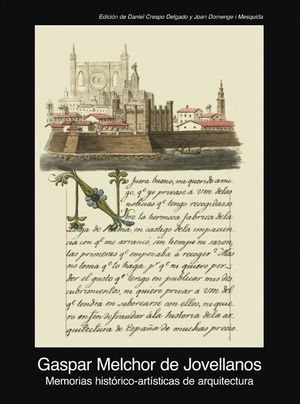 Edición de Daniel Crespo Delgado y Joan Domenge i Mesquida
No fuera bueno, mi querido ami-
go, q.e yo privase á Vm. de las
noticias q.e tengo recogidas so-
bre la hermosa fabrica de la
Lonja de Palma, en castigo de la impacien-
cia con q.e me arrancó, sin tiempo ni sazon,
las primeras q.e empezaba á recoger? Mas
no tema q.e lo haga, p.r q.e ni quiero per-
der el gusto q.e tengo en publicar mis des-
cubrimientos, ni quiero privar á Vm. del
q.e tendrá en saborearse con ellos, ni quie-
ro en fin defraudar á la historia de la ar-
quitectura de España de muchas precio
Gaspar Melchor de Jovellanos
Memorias histórico-artísticas de arquitectura